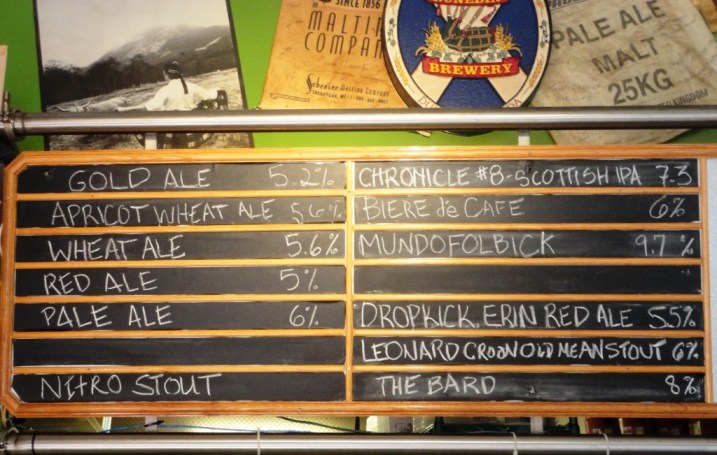 SINCE 1856
MALTI
COMPAN
Schreier Malting Company
DUNEDIN
BREWERY
PALE ALE
MALT
25KG
GOLD ALE 5.2%
APRICOT WHEAT ALE 5.6%
WHEAT ALE 5.6%
RED ALE 5%
PALE ALE 6%
NITRO STOUT
CHRONICLE #8-SCOTTISH IPA 7.3
BIERE de CAFE 6%
MUNDOFOLBICK 9.7%
DROPKICK ERIN RED ALE 5.5%
LEONARD OLD MEAN STOUT 6%
THE BARD 8%